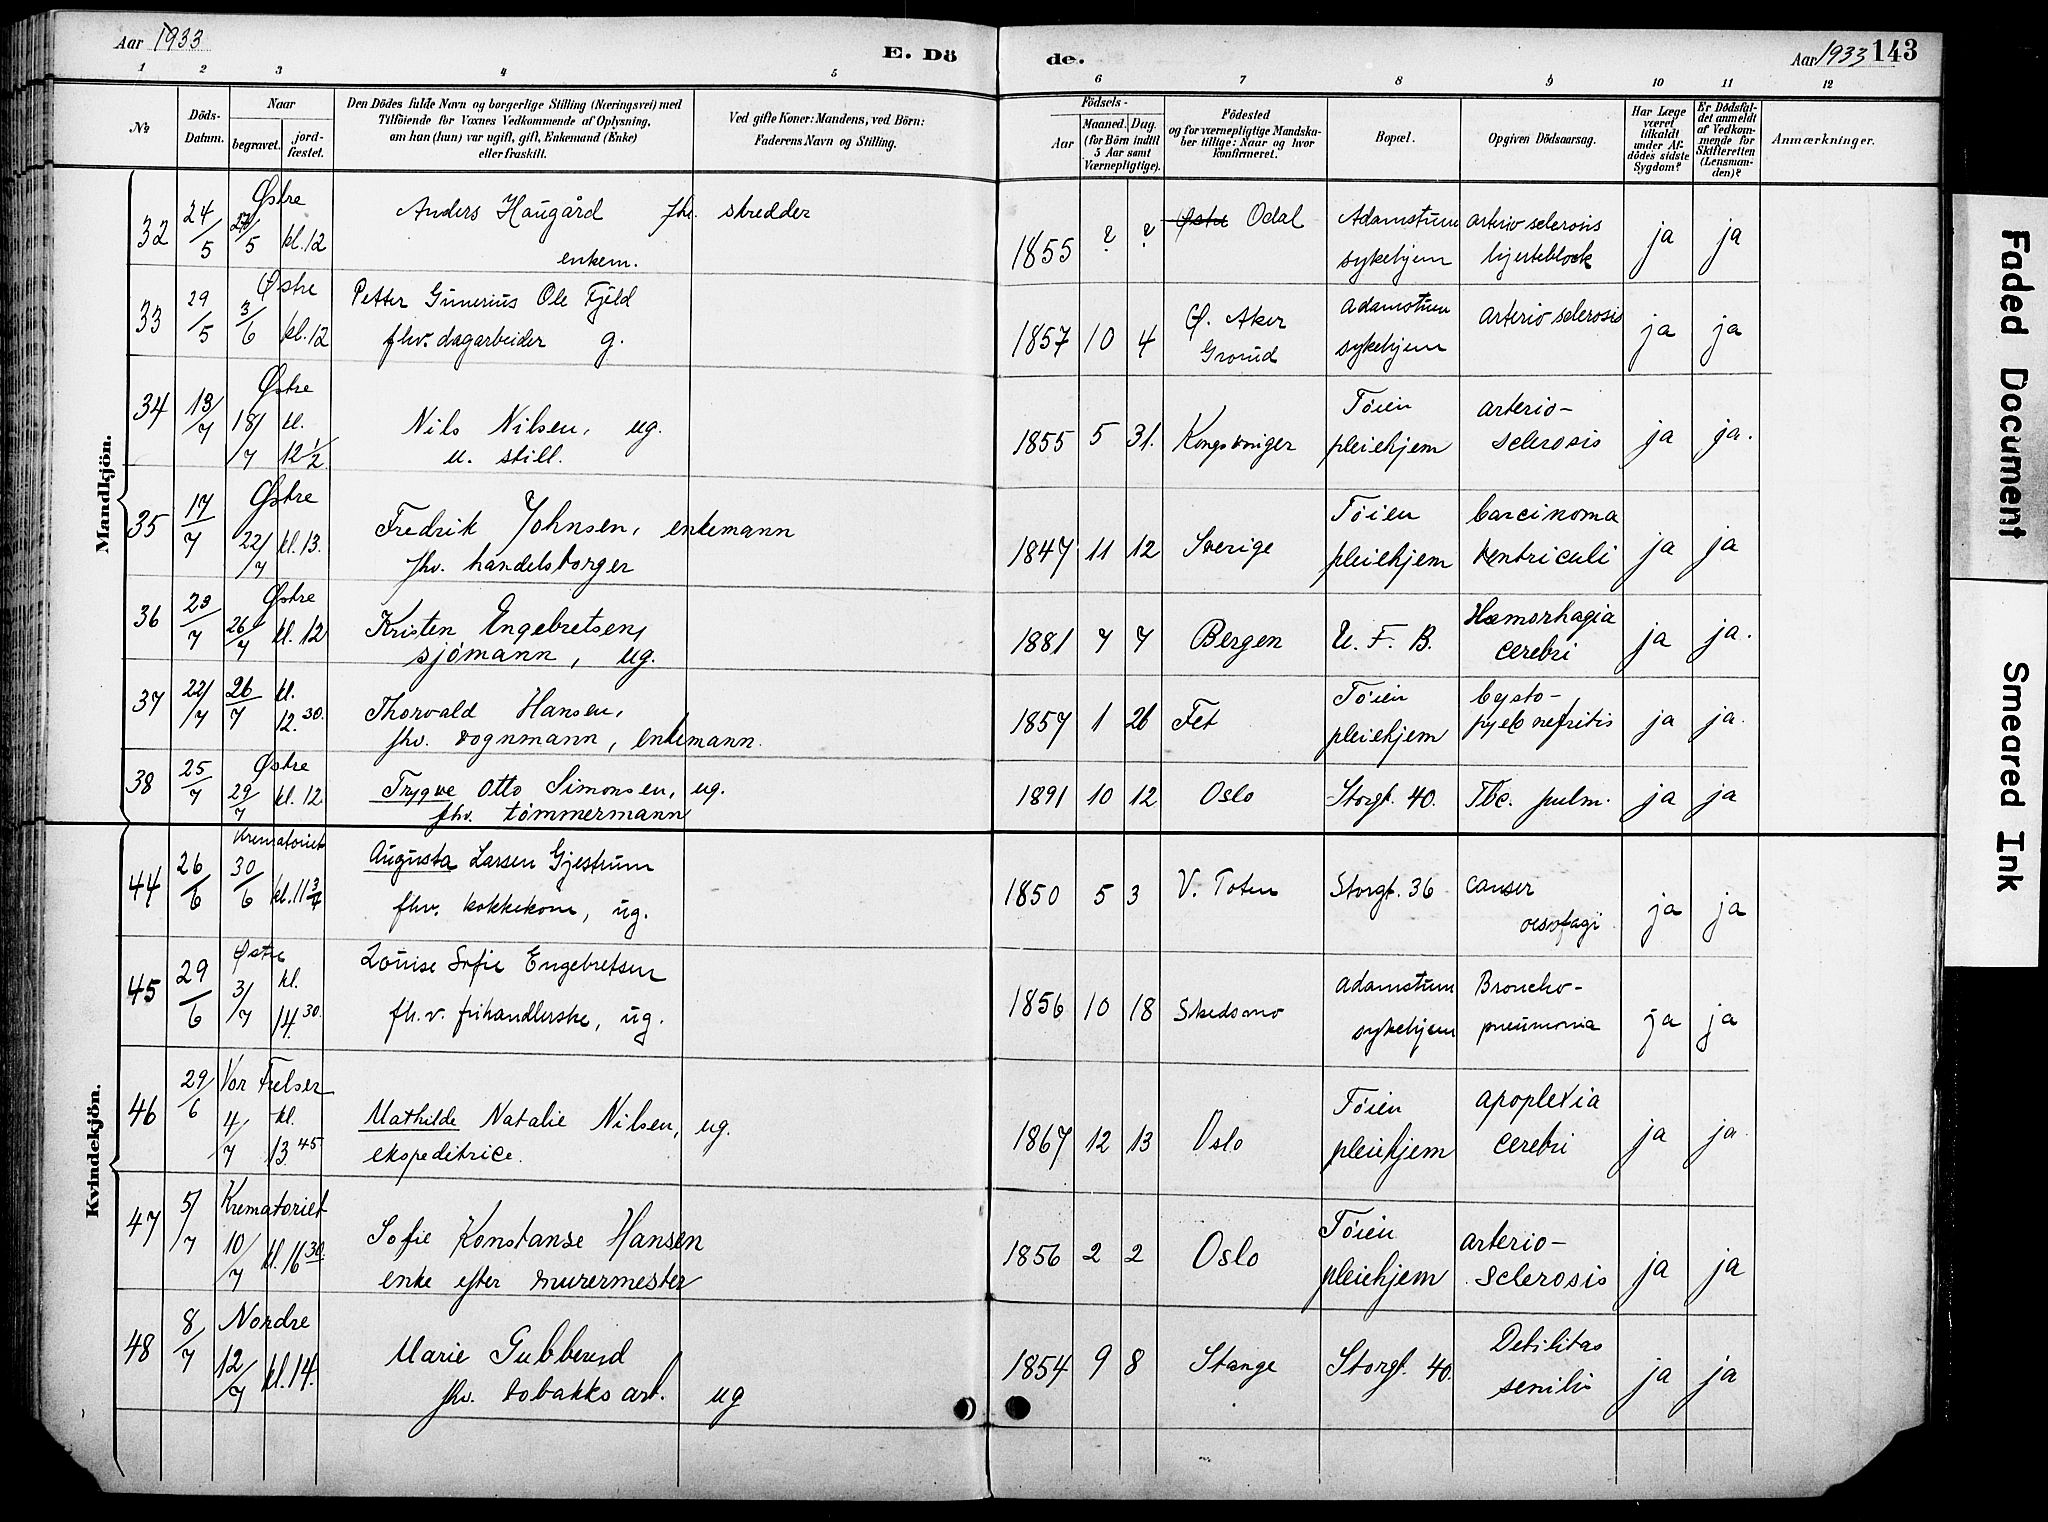 Aar 1933
E. Dö
de.
Aar 1933 143
1 2 3 4 5 6 7 8 9 10 11 12
No
Döds-Datum.
Naar
begravet.
jord-fæstet.
Den Dödes fulde Navn og borgerlige Stilling (Næringsvei) med
Tilföiende for Voxnes Vedkommende af Oplysning,
om han (hun) var ugift, gift, Enkemand (Enke)
eller fraskilt.
Ved gifte Koner: Mandens, ved Börn:
Faderens Navn og Stilling.
Födsels-
Aar
Maaned. Dag.
(for Börn indtil
5 Aar samt
Værnepligtige).
Födested
og for værnepligtige Mandska-
ber tillige: Naar og hvor
konfirmeret.
Bopæl.
Opgiven Dödsaarsag.
Har Læge
været
tilkaldt
under Af-
dödes sidste
Sygdom?
Er Dödsfal-
det anmeldt
af Vedkom-
mende for
Skifteretten
(Lensman-
den)?
Anmærkninger.
Mandkjön.
32 24/5 27/5 Østre kl. 12
Anders Haugård fhv. skredder
enkem.
1855 ? ? Østre Odal
Adamstuen sykehjem
arterio sclerosis
hjerteblock
ja ja
33 29/5 3/6 Østre kl. 12
Petter Gunerius Ole Fjeld
fhv. dagarbeider g.
1857 10 4 Ø. Aker
Grorud
Adamstuen sykehjem
arterio sclerosis
ja ja
34 13/7 18/7 Østre kl. 12 1/2
Nils Nilsen, ug.
u. still.
1855 5 31. Kongsvinger
Tøien pleiehjem
arterio-
sclerosis
ja ja.
35 17/7 22/7 Østre kl. 13.
Fredrik Johnsen, enkemann
fhv. handelsborger
1847 11 12 Sverige
Tøien pleiehjem
Carcinoma
ventriculi
ja ja
36 23/7 26/7 Østre kl. 12
Kristen Engebretsen,
sjømann, ug.
1881 7 7 Bergen
U. F. B.
Hæmorhagia
cerebri
ja ja.
37 22/7 26/7 kl. 12.30.
Thorvald Hansen,
fhv. vognmann, enkemann.
1857 1 26 Fet
Tøien pleiehjem
Cysto-
pyelo nefritis
ja ja.
38 25/7 29/7 Østre kl. 12
Trygve Otto Simonsen, ug.
fhv. tømmermann
1891 10 12 Oslo
Storgt. 40.
Tbc. pulm.
ja ja
Kvindekjön.
44 26/6 30/6 Krematoriet kl. 11 3/4
Augusta Larsen Gjestrum
fhv. kokkekone, ug.
1850 5 3 V. Toten
Storgt. 36
canser
oesofagi
ja ja
45 29/6 3/7 Østre kl. 14.30.
Louise Sofie Engebretsen
fh.v. frihandlerske, ug.
1856 10 18 Skedsmo
Adamstuen sykehjem
Broncho-
pneumonia
ja ja
46 29/6 4/7 Vor Frelser kl. 13.45
Mathilde Natalie Nilsen, ug.
ekspeditrice.
1867 12 13 Oslo
Tøien pleiehjem
apoplexia
cerebri
ja ja.
47 5/7 10/7 Krematoriet kl. 16.30.
Sofie Konstanse Hansen
enke efter murermester
1856 2 2 Oslo
Tøien pleiehjem
arterio-
sclerosis
ja ja
48 8/7 12/7 Nordre kl. 14.
Marie Gubberud
fhv. tobakks arb. ug
1854 9 8 Stange
Storgt. 40.
Debilitas
senilis
ja ja
Faded Document
Smeared Ink